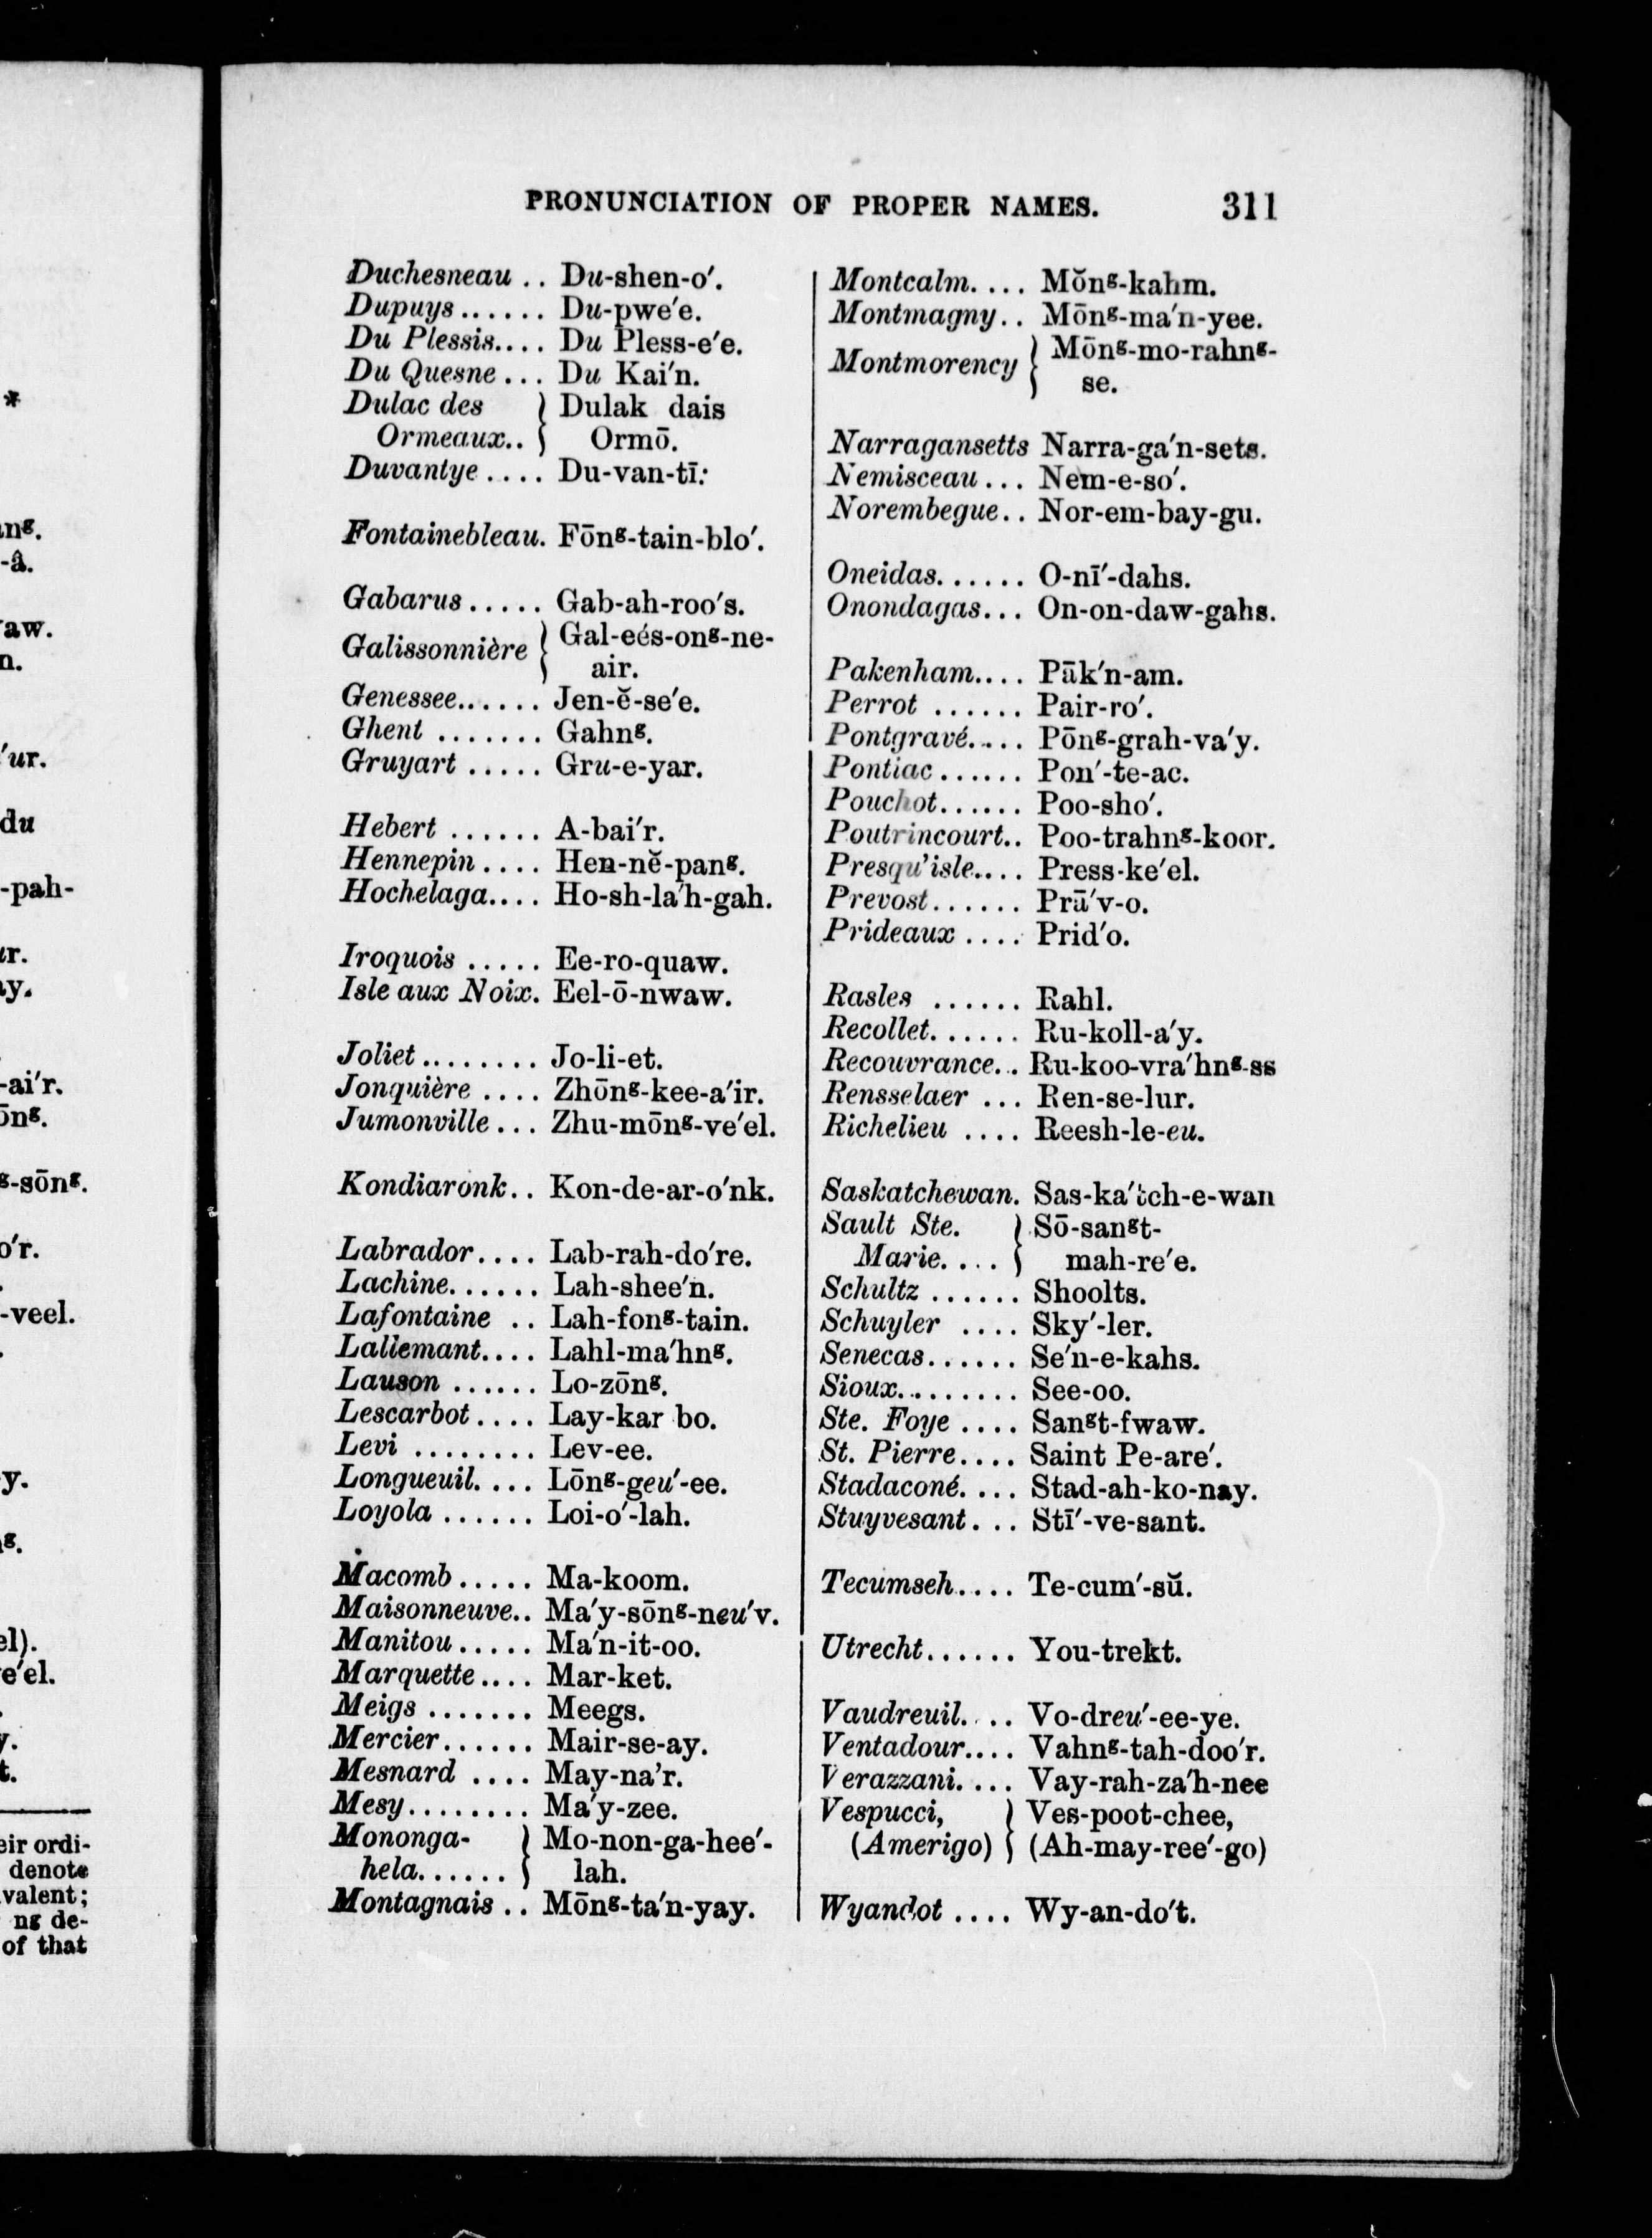 PRONUNCIATION OF PROPER NAMES. 311
Duchesneau .. Du-shen-o′.
Dupuys...... Du-pwe′e.
Du Plessis.... Du Pless-e′e.
Du Quesne... Du Kai′n.
Dulac des } Dulak dais
Ormeaux.. } Ormō.
Duvantye.... Du-van-tī.
Fontainebleau. Fōnᵍ-tain-blo′.
Gabarus..... Gab-ah-roo′s.
Galissonnière } Gal-eés-onᵍ-ne-
air.
Genessee...... Jen-ĕ-se′e.
Ghent ....... Gahnᵍ.
Gruyart ..... Gru-e-yar.
Hebert ...... A-bai′r.
Hennepin.... Hen-nĕ-panᵍ.
Hochelaga.... Ho-sh-la′h-gah.
Iroquois ..... Ee-ro-quaw.
Isle aux Noix. Eel-ō-nwaw.
Joliet........ Jo-li-et.
Jonquière .... Zhōnᵍ-kee-a′ir.
Jumonville... Zhu-mōnᵍ-ve′el.
Kondiaronk.. Kon-de-ar-o′nk.
Labrador.... Lab-rah-do′re.
Lachine...... Lah-shee′n.
Lafontaine .. Lah-fonᵍ-tain.
Lallemant.... Lahl-ma′hnᵍ.
Lauson ...... Lo-zōnᵍ.
Lescarbot.... Lay-kar bo.
Levi ........ Lev-ee.
Longueuil.... Lōnᵍ-geu′-ee.
Loyola ...... Loi-o′-lah.
Macomb..... Ma-koom.
Maisonneuve.. Ma′y-sōnᵍ-neu′v.
Manitou..... Ma′n-it-oo.
Marquette.... Mar-ket.
Meigs ....... Meegs.
Mercier...... Mair-se-ay.
Mesnard .... May-na’r.
Mesy........ Ma′y-zee.
Mononga- } Mo-non-ga-hee′-
hela...... } lah.
Montagnais .. Mōnᵍ-ta′n-yay.
Montcalm.... Mŏnᵍ-kahm.
Montmagny.. Mōnᵍ-ma′n-yee.
Montmorency } Mōnᵍ-mo-rahnᵍ-
se.
Narragansetts Narra-ga′n-sets.
Nemisceau... Nem-e-so′.
Norembegue.. Nor-em-bay-gu.
Oneidas...... O-nī′-dahs.
Onondagas... On-on-daw-gahs.
Pakenham.... Pāk′n-am.
Perrot ...... Pair-ro′.
Pontgravé.... Pōnᵍ-grah-va′y.
Pontiac...... Pon′-te-ac.
Pouchot...... Poo-sho′.
Poutrincourt.. Poo-trahnᵍ-koor.
Presqu’isle.... Press-ke′el.
Prevost...... Prā′v-o.
Prideaux.... Prid′o.
Rasles ...... Rahl.
Recollet...... Ru-koll-a′y.
Recouvrance... Ru-koo-vra′hnᵍ-ss
Rensselaer ... Ren-se-lur.
Richelieu .... Reesh-le-eu.
Saskatchewan. Sas-ka′tch-e-wan
Sault Ste. } Sō-sanᵍt-
Marie.... } mah-re′e.
Schultz ...... Shoolts.
Schuyler .... Sky′-ler.
Senecas...... Se′n-e-kahs.
Sioux........ See-oo.
Ste. Foye .... Sanᵍt-fwaw.
St. Pierre.... Saint Pe-are′.
Stadaconé.... Stad-ah-ko-nay.
Stuyvesant... Stī′-ve-sant.
Tecumseh.... Te-cum′-sŭ.
Utrecht...... You-trekt.
Vaudreuil.... Vo-dreu′-ee-ye.
Ventadour.... Vahnᵍ-tah-doo′r.
Verazzani.... Vay-rah-za′h-nee
Vespucci, } Ves-poot-chee,
(Amerigo) } (Ah-may-ree′-go)
Wyandot .... Wy-an-do′t.
*
-â.
du
-pah-
-ai′r.
-sōnᵍ.
o′r.
-veel.
eir ordi-
denote
valent;
ng de-
of that